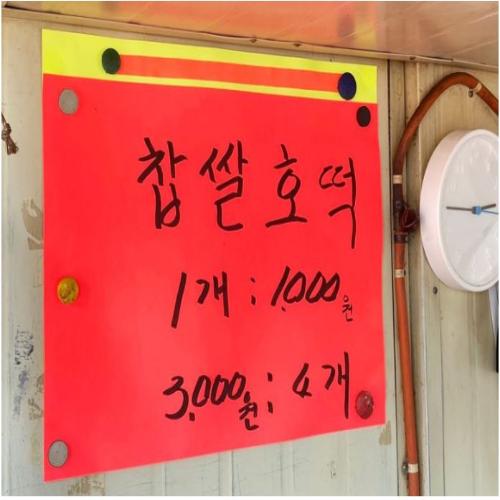 찹쌀호떡
1개 : 1,000원
3,000원 : 4개